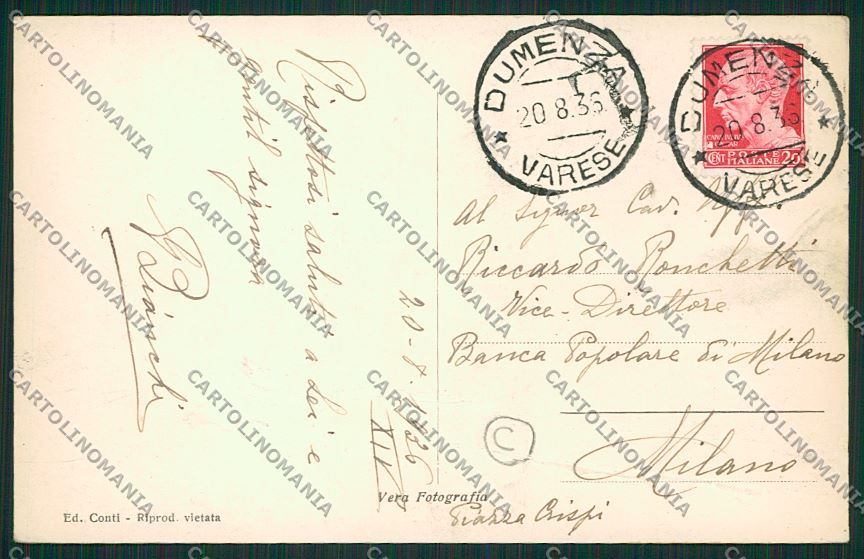 DUMENZA
20 8.36
VARESE
DUMENZA
20 8.36
VARESE
POSTE
ITALIANE
CENT 20
Al Signor Cav. Uff.
Riccardo Ronchetti
Vice-Direttore
Banca Popolare di Milano
Milano
Piazza Crispi
Rispettosi saluti a Lei e
gentil signora
20-8-1936
XIV
C
Vera Fotografia
Ed. Conti - Riprod. vietata
CARTOLINOMANIA